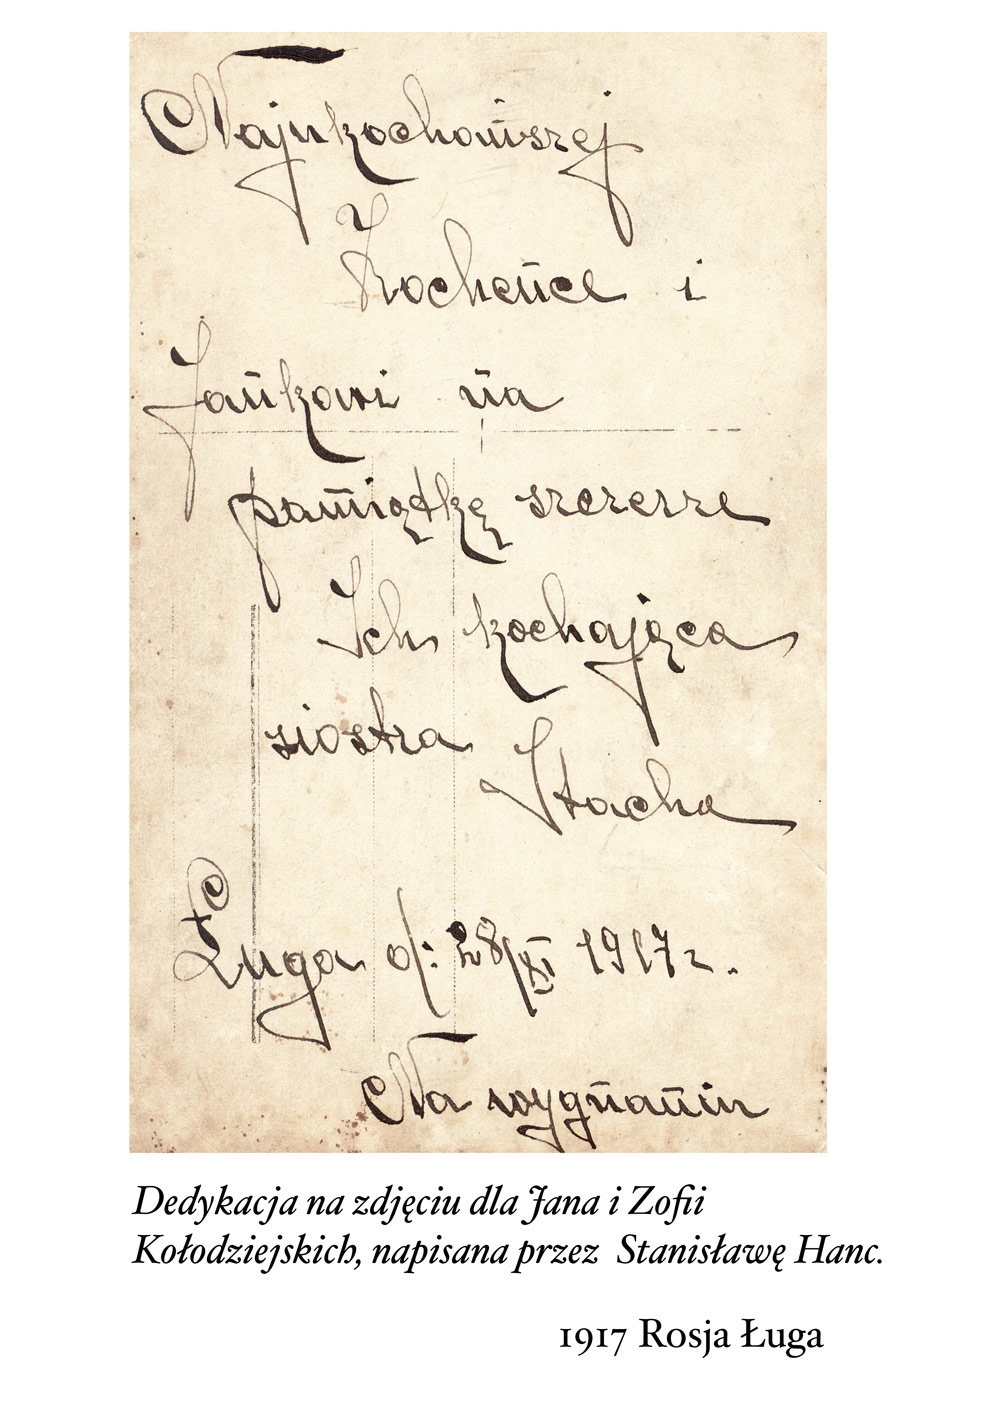 Najukochańszej
Kocheńce i
Jankowi na
pamiątkę szczerze
Ich kochająca
siostra Stacha
Ługa d: 28/XI 1917 r.
Na wygnaniu
Dedykacja na zdjęciu dla Jana i Zofii
Kołodziejskich, napisana przez Stanisławę Hanc.
1917 Rosja Ługa